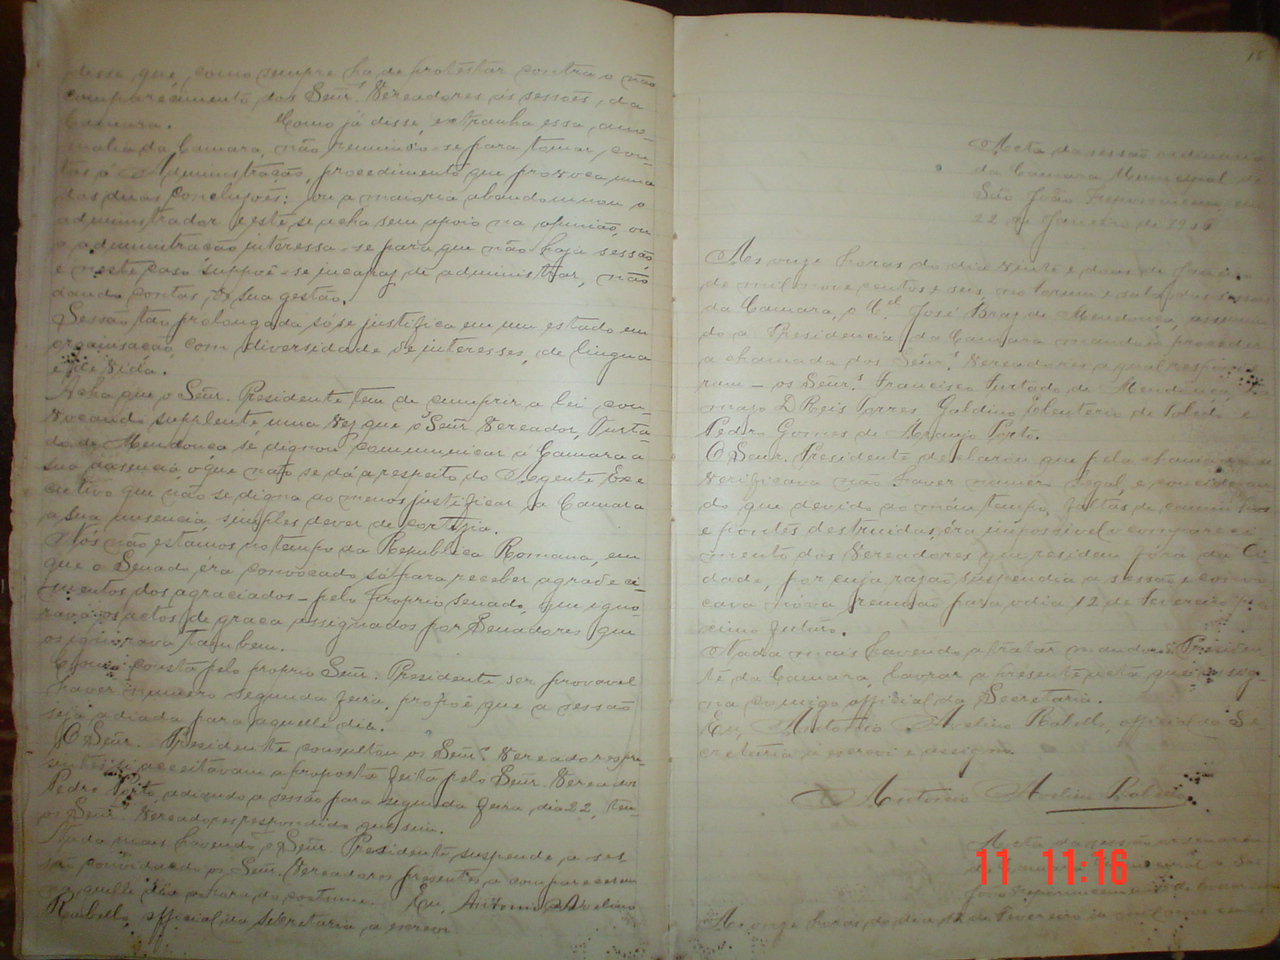 disse que, como sempre ha de protestar contra o não
comparecimento dos Senr.s Vereadores ás sessões da
Camara. Como já disse, extranha essa ano-
malia da Camara, não reunindo-se para tomar con-
tas á Administração, procedimento que provoca uma
das duas conclusões: ou a maioria abandonnou o
administrador e este se acha sem apoio na opinião, ou
a administração interessa-se para que não haja sessão
e neste caso suppoê-se incapaz de administrar, não
dando contas de sua gestão.
Sessão tão prolongada só se justifica em um estado em
organisação, com diversidade de interesses, de lingua
e de vida.
Acha que o Senr. Presidente tem de cumprir a lei con-
vocando supplente, uma vez que o Senr Vereador Furta-
do de Mendonca se dignou communicar á Camara a
sua ausencia, o que não se dá a respeito do Agente Exe
cutivo que não se digna ao menos justificar á Camara
a sua ausencia, simples dever de cortezia.
Nós não estamos no tempo da Republica Romana, em
que o Senado era convocado só para receber agradeci
mentos dos agraciados - pelo proprio Senado, que igno
rava os actos de graca assignados por Senadores que
os ignorava tambem.
Como consta pelo proprio Senr. Presidente ser provavel
haver numero segunda feira, propoê que a sessão
seja adiada para aquelle dia.
O Senr. Presidente consultou os Senr.s Vereadores pre
sentes si acceitavam a proposta feita pelo Senr. Vereador
Pedro Porto, adiando a sessão para segunda feira, dia 22, ten-
os Senr.s Vereadores respondido que sim.
Nada mais havendo o Senr. Presidente suspende a ses
são convidando os Senr. Vereadores presentes a comparecerem
naquelle dia a hora do costume. Eu, Antonio Avelino
Rabello, official da Secretaria a escrevi
Acta da sessão ordinaria
da Camara Municipal de
São João Nepomuceno, em
22 de Janeiro de 1906
As onze horas do dia vinte e dous de Janeiro
de mil nove centos e seis, no Forum e sala das sessões
da Camara, o C.el José Braz de Mendonça, assumin
do a Presidencia da Camara mandou proceder
a chamada dos Senr.s Vereadores a qual responde
ram - os Senr.s Francisco Furtado de Mendonça,
D Reis Torres Galdino Eleuterio de Toledo e
Pedro Gomes de Araujo Porto.
O Senr. Presidente declarou que pela chamada se
verificava não haver numero legal, e consideran
do que devido ao máu tempo, faltas de caminhos
e pontes destruidas, éra impossivel o compareci
mento dos Vereadores que residem fóra da Ci
dade, por cuja razão suspendia a sessão e convo
cava nova reunião para o dia 12 de Fevereiro pro
cimo futuro.
Nada mais havendo a tratar mandou o Presiden
te da Camara, lavrar a presente acta que assig-
na comigo official da Secretaria.
Eu, Antonio Avelino Rabello, official da Se
cretaria a escrevi e assigno.
Antonio Avelino Rabello
Acta da sessão ordinaria
da Camara Municipal de São
João Nepomuceno em 12 de Fevereiro
As onze horas do dia 12 de Fevereiro de mil nove centos
11 11:16